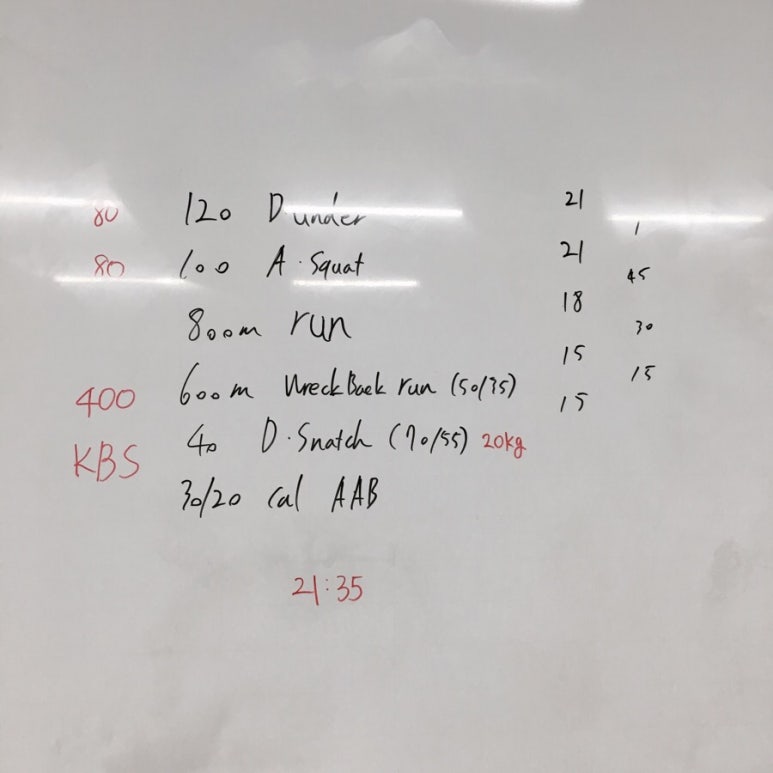 80 120 D under
80 100 A. Squat
800m run
400 600m WreckBack run (50/35)
KBS 40 D. Snatch (70/55) 20kg
30/20 Cal AAB
21:35
21
21
18
15
15
1
45
30
15